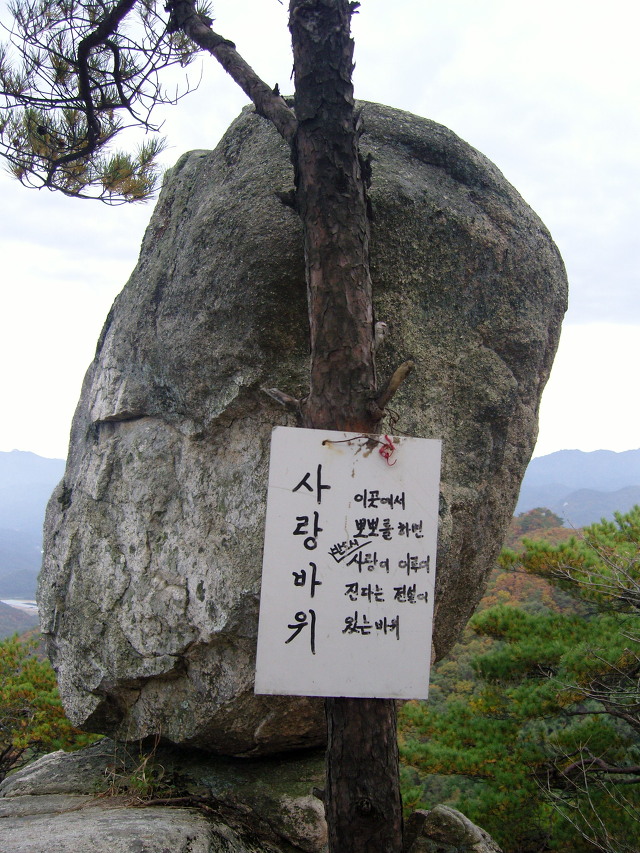 사랑바위
이곳에서
뽀뽀를 하면
반드시
사랑이 이루어
진다는 전설이
있는 바위